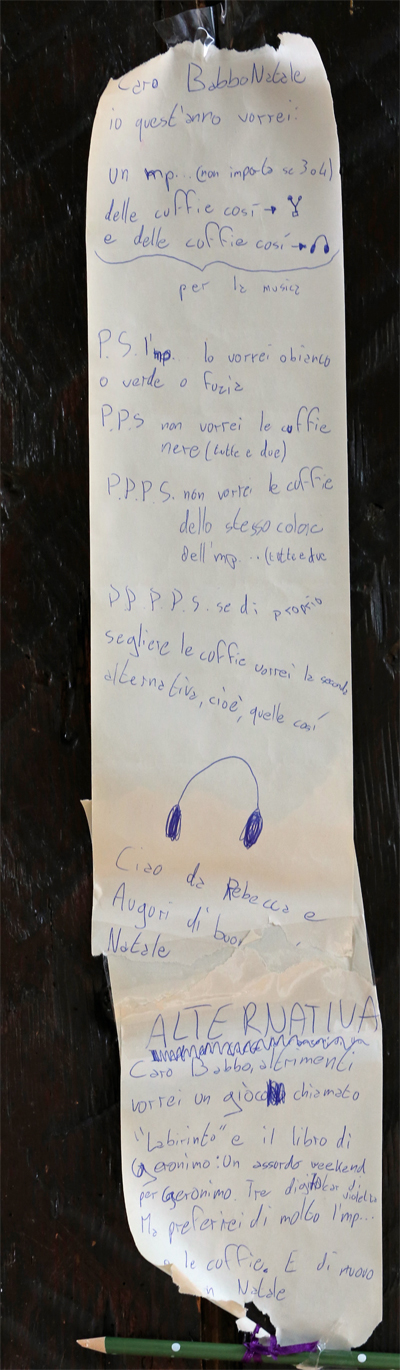 caro Babbo Natale
io quest'anno vorrei:
un mp... (non importa se 3 o 4)
delle cuffie così →
e delle cuffie così →
per la musica
P.S. l'mp... lo vorrei o bianco
o verde o fuzia
P.P.S non vorrei le cuffie
nere (tutte e due)
P.P.P.S. non vorrei le cuffie
dello stesso colore
dell'mp... (tutte e due
P.P.P.P.S. se di proprio
segliere le cuffie vorrei la seconda
alternativa, cioè, quelle così
Ciao da Rebecca e
Auguri di buon
Natale
ALTERNATIVA
Caro Babbo, altrimenti
vorrei un gioco chiamato
"Labirinto" e il libro di
Geronimo: Un assurdo weekend
per Geronimo. Tre di
Ma preferirei di molto l'mp...
e le cuffie. E di nuovo
n Natale